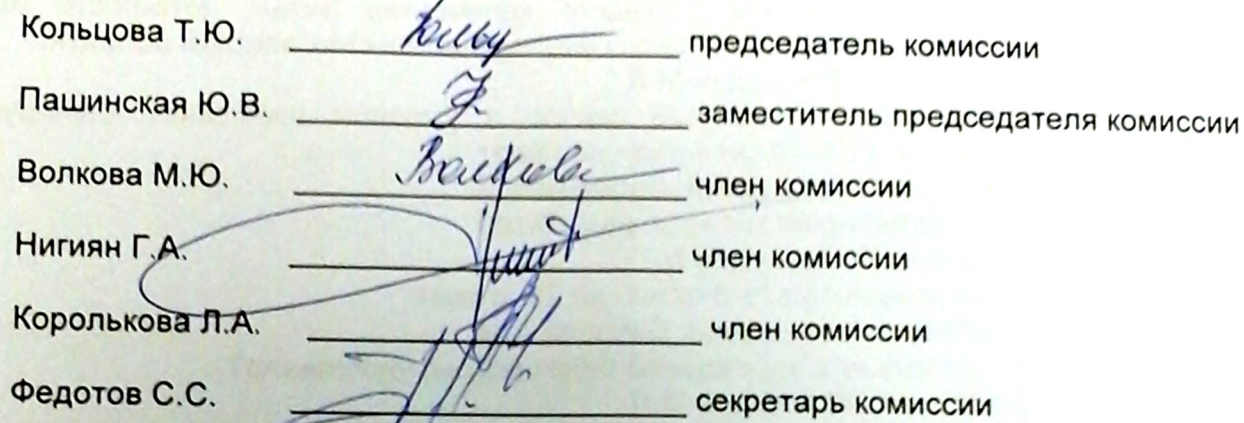 Кольцова Т.Ю. председатель комиссии
Пашинская Ю.В. заместитель председателя комиссии
Волкова М.Ю. Волкова член комиссии
Нигиян Г.А. член комиссии
Королькова Л.А. член комиссии
Федотов С.С. секретарь комиссии